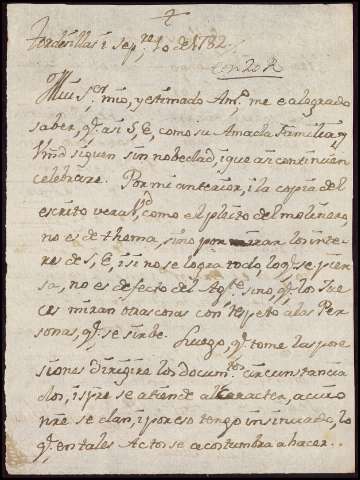 Tordesillas i Sepre. 10 de 1782
Muy Sor. mio, y estimado Amo. me e alegrado
saber, q. asi S, E, como su Amada Familia, y
Vmd siguen sin nobedad, i que asi continuen
celebrare. Por mi anterior, i la copia del
escrito vera Vd, como el pleito del molinero,
no es de thema, sino por mirar los inte
res de S, E, i si no se logra todo, lo q. se pien
sa, no es defecto del Agte, sino q. los Jue
ces miran otras cosas con respeto a las Per
sonas, q. se sirbe. Luego, q. tome las pose
siones dirigire los documtos. circunstancia
dos, i spre se atiende al caracter, a cuio
nre se dan, i por eso tengo insinuado, lo
q. en tales Actos se acostumbra a hacer..